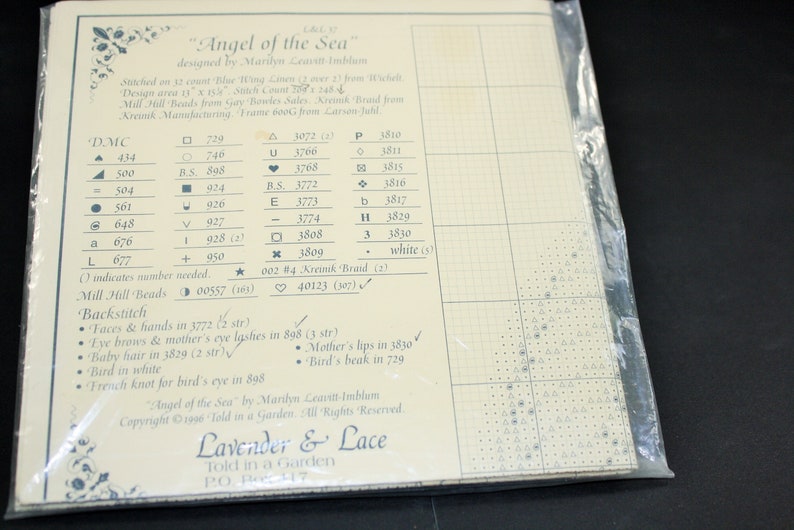 L&L 37
"Angel of the Sea"
designed by Marilyn Leavitt-Imblum
Stitched on 32 count Blue Wing Linen (2 over 2) from Wichelt.
Design area 13" x 15½". Stitch Count 209 x 248.
Mill Hill Beads from Gay Bowles Sales. Kreinik Braid from
Kreinik Manufacturing. Frame 600G from Larson-Juhl.
DMC
434
500
= 504
561
648
a 676
L 677
729
746
B.S. 898
924
926
V 927
I 928 (2)
+ 950
3072 (2)
U 3766
3768
B.S. 3772
E 3773
− 3774
3808
3809
P 3810
3811
3815
3816
b 3817
H 3829
3 3830
• white (5)
() indicates number needed.
★ 002 #4 Kreinik Braid (2)
Mill Hill Beads 00557 (163) 40123 (307)
Backstitch
• Faces & hands in 3772 (2 str)
• Eye brows & mother's eye lashes in 898 (3 str)
• Baby hair in 3829 (2 str)
• Bird in white
• French knot for bird's eye in 898
• Mother's lips in 3830
• Bird's beak in 729
"Angel of the Sea" by Marilyn Leavitt-Imblum
Copyright ©1996 Told in a Garden. All Rights Reserved.
Lavender & Lace
Told in a Garden
P.O. Box 117